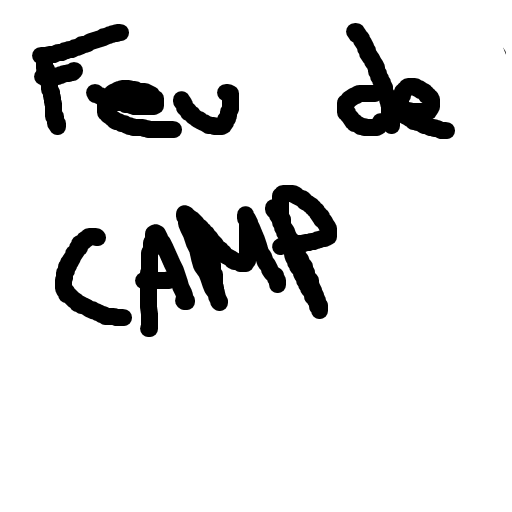 Feu de
CAMP